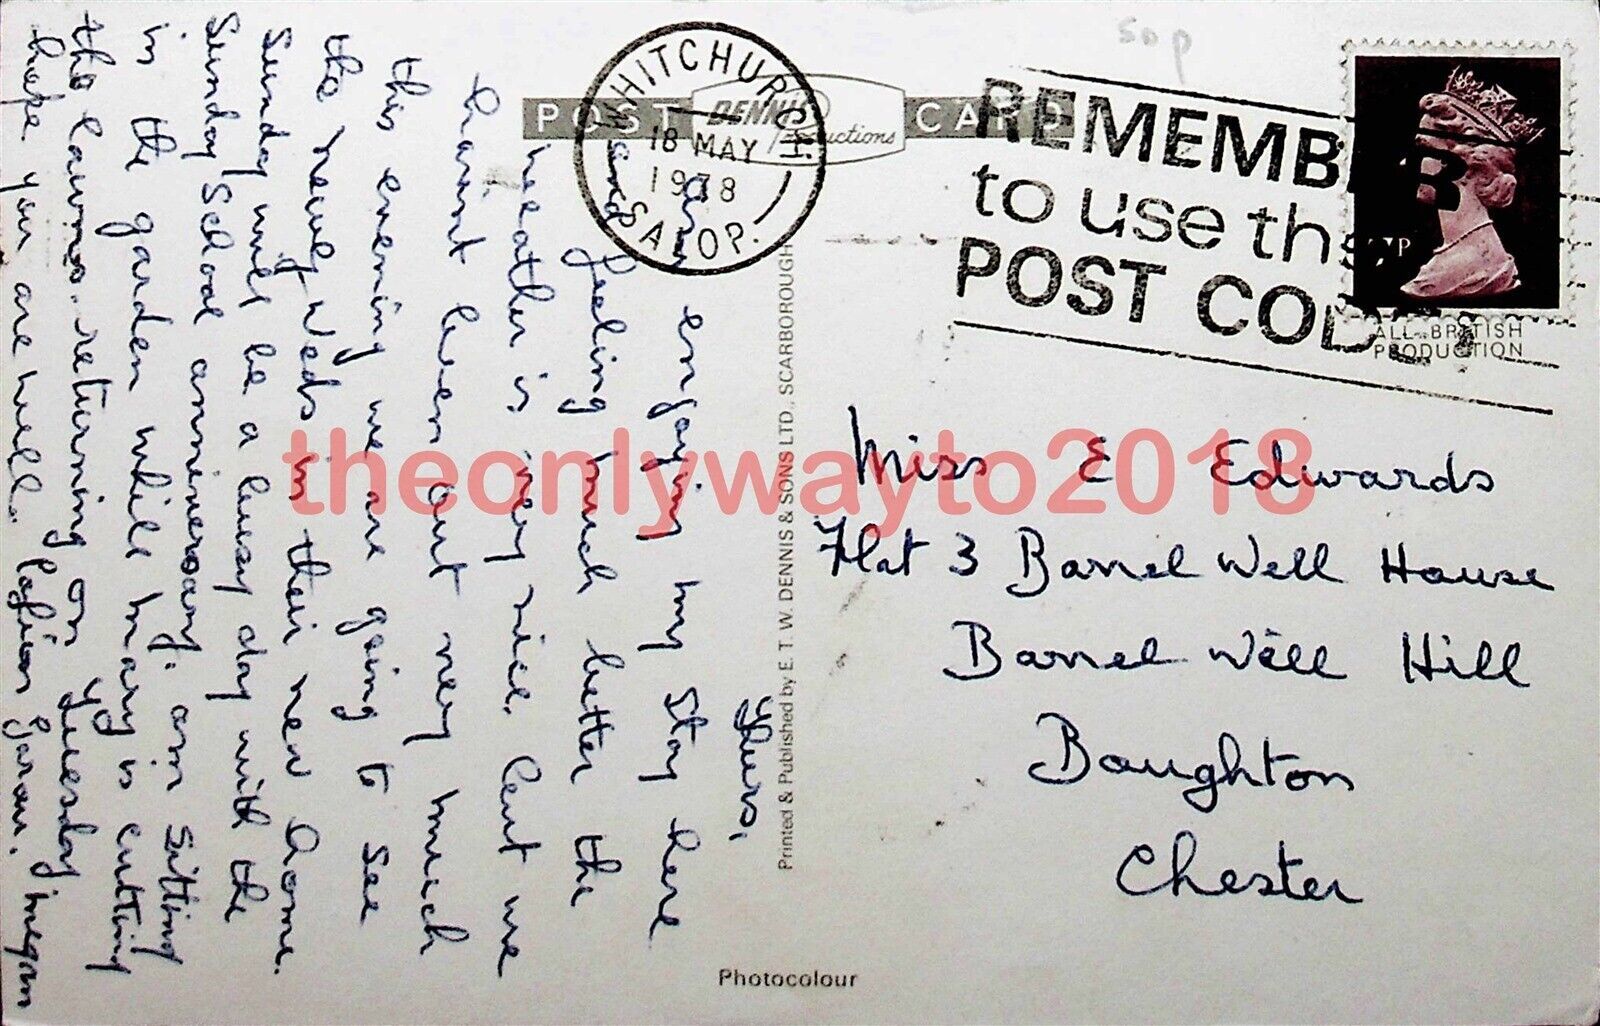 50p
POST CARD
DENNIS
Productions
WHITCHURCH
18 MAY
1978
SALOP.
REMEMBER
to use the
POST CODE
7P
ALL BRITISH
PRODUCTION
Thurs,
am enjoying my stay here
and feeling much better the
weather is very nice. but we
havint been out very much
this evening we are going to see
the newly Weds in their new home.
Sunday will be a busy day with the
Sunday School anniversary. am sitting
in the garden while mary is cutting
the lawns. returning on Tuesday
hope you are well. Megan
Printed & Published by E. T. W. DENNIS & SONS LTD., SCARBOROUGH
Miss E Edwards
Flat 3 Barrel Well House
Barrel Well Hill
Boughton
Chester
Photocolour
theonlywayto2018